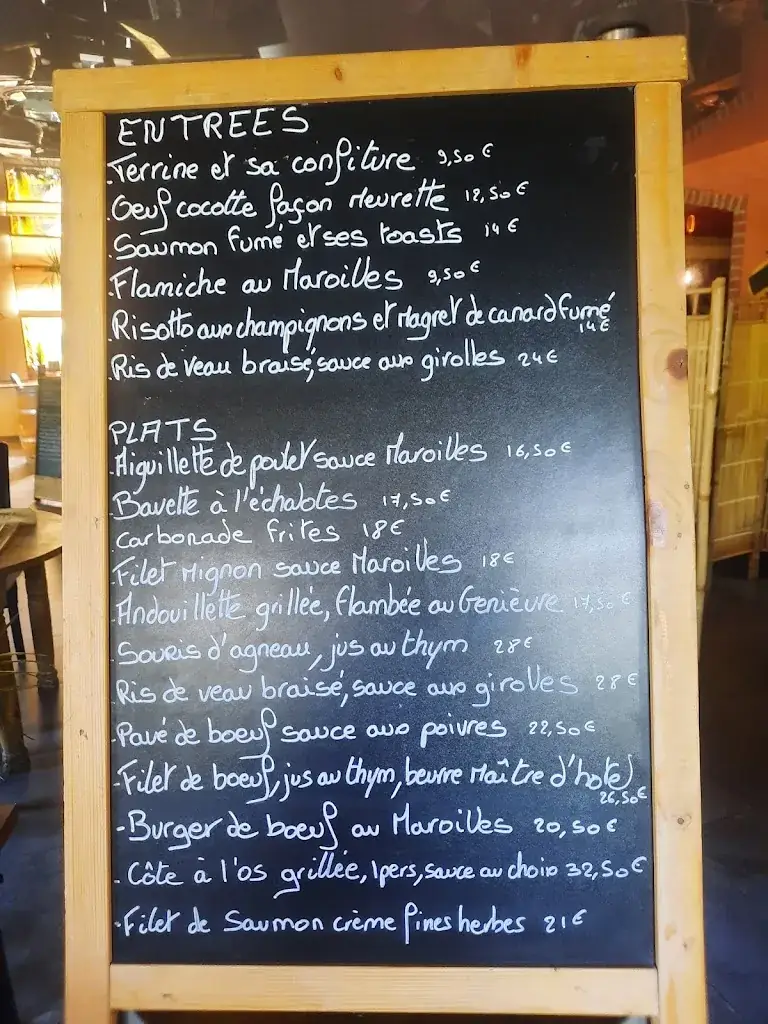 ENTREES
.Terrine et sa confiture 9,50€
.Oeuf cocotte façon Meurette 12,50€
.Saumon fumé et ses toasts 14€
.Flamiche au Maroilles 9,50€
.Risotto aux champignons et Magret de canard fumé
14€
.Ris de veau braisé, sauce aux girolles 24€
PLATS
.Aiguillette de poulet sauce Maroilles 16,50€
.Bavette à l'échalotes 17,50€
.Carbonade frites 18€
.Filet Mignon sauce Maroilles 18€
.Andouillette grillée, flambée au Genièvre 17,50€
.Souris d'agneau, jus au thym 28€
.Ris de veau braisé, sauce aux girolles 28€
-Pavé de boeuf sauce aux poivres 22,50€
-Filet de boeuf, jus au thym, beurre Maître d'hotel
26,50€
-Burger de boeuf au Maroilles 20,50€
-Côte à l'os grillée, 1pers, sauce au choix 32,50€
-Filet de Saumon crème fines herbes 21€